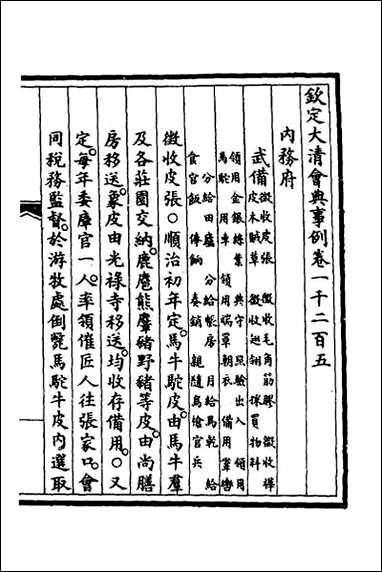 欽定大清會典事例卷一千二百五
內務府
武備徵收皮張 徵收毛角筋膠 徵收樺
皮木賊草 徵收翅翎 採買物料
領用金銀絲葉 典守 照驗出入 領用
馬駝用車 領用端罩朝衣 備用鞌轡
分給田廬 分給帳房 月給馬乾 給
食官飯 俸餉 奏銷 親隨鳥槍官兵
徵收皮張○順治初年定馬牛駝皮由馬牛羣
及各莊園交納鹿麅熊麞豬野豬等皮由尚膳
房移送羣皮由光祿寺移送均收存備用○又
定每年委庫官一人率領催匠人往張家口會
同稅務監督於游牧處倒斃馬駝牛皮內選取